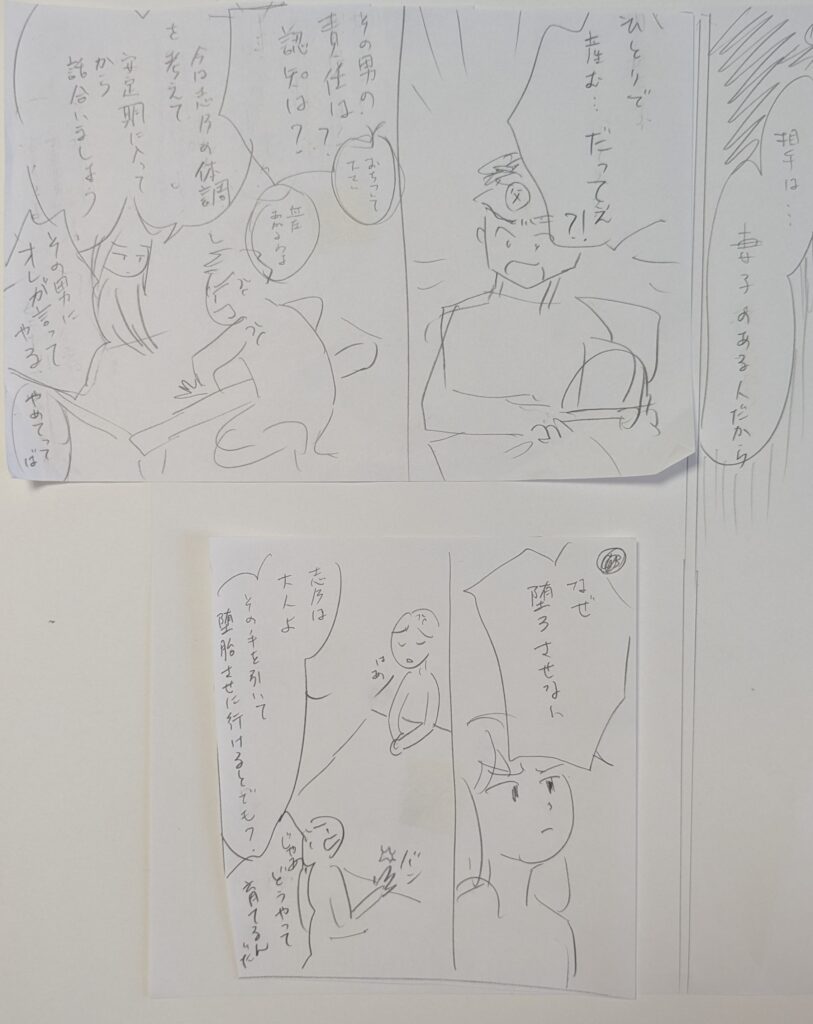 相手は…
妻子のある人だから
ひとりで
産む…だってえ
?!
父
その男の
責任は?
認知は?
おちついて
下さい
今は志乃の体調
を考えて
安定期に入って
から
話合いをしましょう
その男に
オレが言って
やる
やめてって
ば
なぜ
堕ろさせない
志乃は
大人よ
その手を引いて
堕胎させに行けるとでも?
はあ
バン
じゃあ
どうやって
育てるんだ